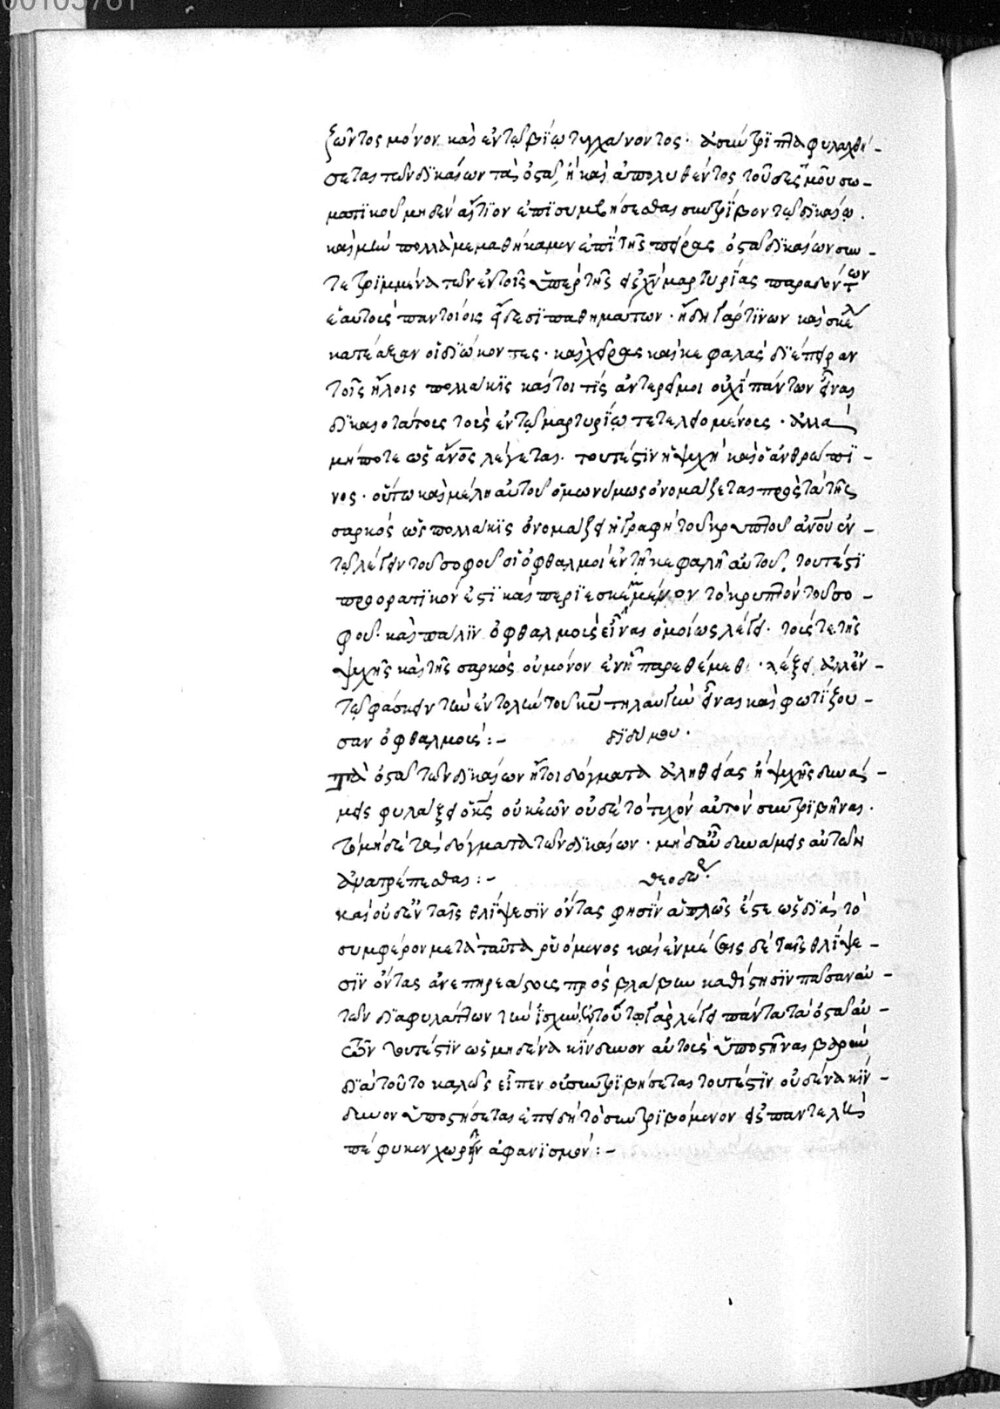 ζῶντος μόνον καὶ ἐν τῶ βίω τυγχάνοντος· ἀσύντριπτα φυλαχθή-
σεται τῶν δικαίων τὰ ὀστᾶ, ἢ καὶ ἀπολυθέντος τοῦ δεσμοῦ σω-
ματικοῦ μηδὲν αὐτῶν ἐπισυμβήσεσθαι συντρίβον τῶ δικαίω.
καὶ μὴν πολλὰ μεμαθήκαμεν ἐπὶ τῆς πείρας ὀστᾶ δικαίων συν-
τετριμμένα τῶν ἐν τοῖς ὑπὲρ τῆς εἰς χν μαρτυρίας παραδόντων
ἑαυτοὺς παντοίοις εἴδεσι παθημάτων· ἤδη γάρ τινων καὶ σκέλη
κατέαξαν οἱ διώκοντες· καὶ χεῖρας καὶ κεφαλὰς διέπειραν
τοῖς ἥλοις πολλάκις καίτοι τίς ἀντερεῖ μοι οὐχὶ πάντων εἶναι
δικαιοτάτους τοὺς ἐν τῶ μαρτυρίω τετελειομένους· ἀλλὰ
μήποτε ὡς ἄνος λέγεται· τουτέστιν ἡ ψυχὴ καὶ ὁ ἀνθρώπι-
νος· οὕτω καὶ μέλη αὐτοῦ ὁμωνύμως ὀνομάζεται πρὸς τὰ τῆς
σαρκός ὡς πολλάκις ὀνομάζει ἡ γραφὴ τοῦ κρυπτοῦ ἀνοῦ ἐν
τῶ λέγειν τοῦ σοφοῦ οἱ ὀφθαλμοὶ ἐν τῆ κεφαλῆ αὐτοῦ, τουτέστι
προορατικόν ἐστι καὶ περιεσκεμμένον τὸ κρυπτὸν τοῦ σο-
φοῦ· καὶ πάλιν ὀφθαλμοὺς εἶναι ὁμοίως λέγει· τούς τε τῆς
ψυχῆς καὶ τῆς σαρκός οὐ μόνον ἐν ἧ παρεθέμεθα λέξει ἀλλ' ἐν
τῶ φάσκειν τὴν ἐντολὴν τοῦ κυ τηλαυγῆ εἶναι καὶ φωτίζου-
σαν ὀφθαλμούς:- διδύμου·
τὰ ὀστᾶ τῶν δικαίων ἤτοι δόγματα ἀληθείας ἢ ψυχῆς δυνά-
μεις φυλάξει ὁ κς οὐκ ἐῶν οὐδὲ τὸ τυχὸν αὐτῶν συντριβῆναι·
τῶ μήτε τὰ δόγματα τῶν δικαίων· μήτ' αὖ δυνάμεις αὐτῶν
ἀνατρέπεσθαι:- θεοδώρ
καὶ οὐδὲν ταῖς θλίψεσιν ὄντας φησὶν ἁπλῶς ἔστε ὡς διὰ τὸ
συμφέρον μετὰ ταῦτα ῥυόμενος καὶ ἐν μέσαις δὲ ταῖς θλίψε-
σιν ὄντας ἀνεπηρεάστους πρὸς βλάβην καθίστησιν πᾶσαν αὐ-
τῶν διαφυλάττων τὴν ἰσχὺν, τοῦτο γὰρ λέγει πάντα τὰ ὀστᾶ αὐ-
τῶν τουτέστιν ὡς μηδένα κίνδυνον αὐτοὺς ὑποστῆναι βαρὺν
διὰ τοῦτο καλῶς εἶπεν οὐ συντριβήσεται τουτέστιν οὐδένα κίν-
δυνον ὑποστήσεται ἐπειδὴ τὸ συντριβόμενον εἰς παντελῆ
πέφυκεν χωρεῖν ἀφανισμόν:-